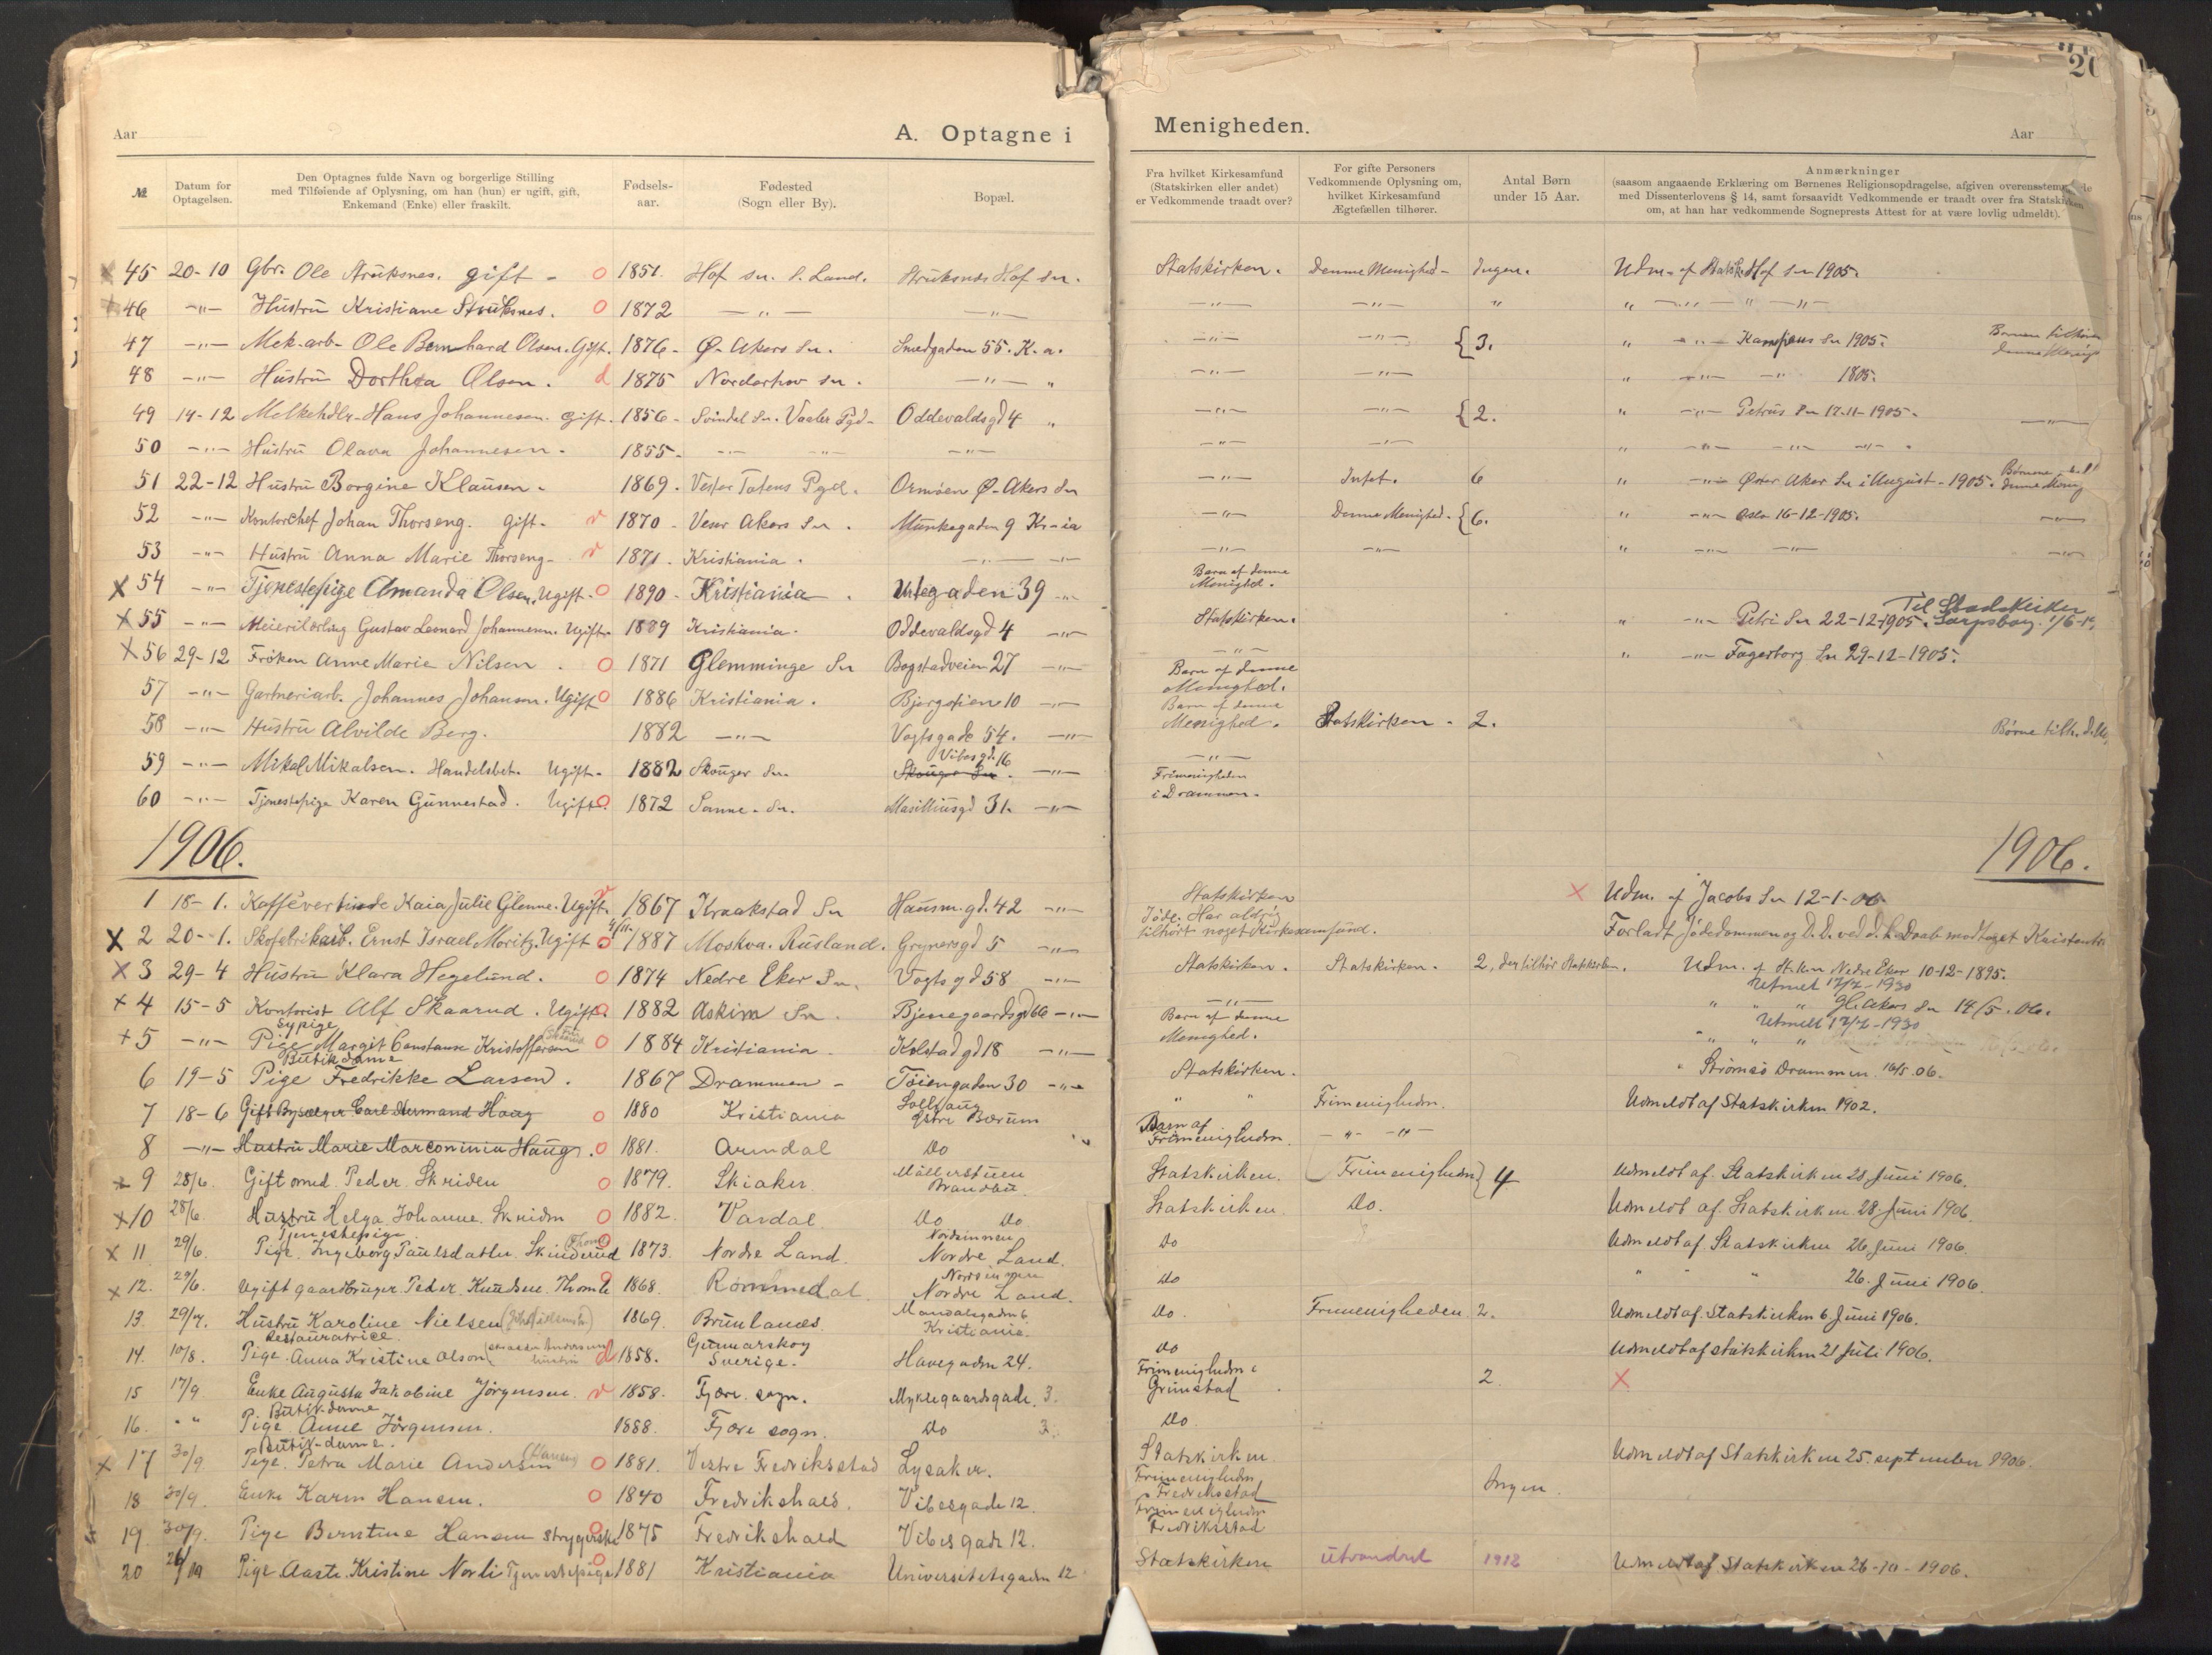 Aar
A. Optagne i
Menigheden.
Aar
№
Datum for
Optagelsen.
Den Optagnes fulde Navn og borgerlige Stilling
med Tilføiende af Oplysning, om han (hun) er ugift, gift,
Enkemand (Enke) eller fraskilt.
Fødsels-
aar.
Fødested
(Sogn eller By).
Bopæl.
Fra hvilket Kirkesamfund
(Statskirken eller andet)
er Vedkommende traadt over?
For gifte Personers
Vedkommende Oplysning om,
hvilket Kirkesamfund
Ægtefællen tilhører.
Antal Børn
under 15 Aar.
Anmærkninger
(saasom angaaende Erklæring om Børnenes Religionsopdragelse, afgiven overensstemmende
med Dissenterlovens § 14, samt forsaavidt Vedkommende er traadt over fra Statskirken
om, at han har vedkommende Sogneprests Attest for at være lovlig udmeldt).
x 45 20-10 Gbr. Ole Struksnes. gift - o 1851. Hof sn. S. Land. Struksnes Hof sn. Statskirken. Denne Menighed - Ingen. Udm. af Statsk. Hof sn 1905.
46 -"- Hustru Kristiane Struksnes. o 1872 -"- -"- -"- -"- " " -"- " -"-
47 -"- Mek-arb- Ole Bernhard Olsen. Gift. 1876 - Ø- Akers Sn. Smedgaden 55. K.a. -"- -"- {3. " -"- Kampens Sn 1905. Børnene tilhører
denne Menigh
48 -"- Hustru Dorthea Olsen. d 1875 Norderhov sn. -"- " -"- -"- " -"- -"- 1805.
49 14-12 Melkehdlr- Hans Johannesen. gift. 1856 - Svindal Sn. Vaaler Pgd - Oddevaldsgd 4 " -"- -"- {2. " -"- Petrus Sn 17-11-1905. -"-
50 -"- Hustru Olava Johannesen. 1855. -"- -"- -"- -"- -"- " -"- -"- -"-
51 22-12 Hustru Borgine Klausen. 1869. Vester Totens Pgd. Ormøen Ø- Akers Sn -"- Intet. 6 " -"- Øster Aker Sn i August - 1905. Børnene
denne Menig
52 -"- Kontorchef Johan Thorseng. gift. v 1870 - Vestr Akers Sn. Munkegaden 9 Kr-ia -"- Denne Menighed. {6. " -"- Oslo 16-12-1905. -"-
53 -"- Hustru Anna Marie Thorseng - v 1871. Kristiania. -"- -"- -"- -"- " -"- -"- -"-
x 54 -"- Tjenestepige Amanda Olsen. Ugift. o 1890 - Kristiania. Urtegaden 39 -"- Barn af denne
Menighed.
x 55 -"- Meierilærling Gustav Leonard Johannesen. Ugift. 1889 Kristiania. Oddevaldsgd 4 -"- Statskirken. " -"- Petri Sn 22-12-1905. Til Stadskirken
Sarpsborg.
x 56 29-12 Frøken Anne Marie Nilsen. o 1871 Glemminge Sn Bogstadveien 27 -"- -"- " -"- Fagerborg Sn 29-12-1905.
57 -"- Gartneriarb. Johannes Johansen. Ugift o 1886 Kristiania. Bjergstien 10 -"- Barn af denne
Menighed.
58 -"- Hustru Alvilde Berg. 1882 -"- Vogtsgade 54. -"- Barn af denne
Menighed. Statskirken. 2. Børne tilh. d. M.
59 -"- Mikal Mikalsen. Handelsbet. Ugift. 1882 Skouger Sn. Vibesgd. 16
Skouger Sn. -"- -"-
60 -"- Tjenestepige Karen Gunnestad. Ugift. o 1872 Sanne - Sn. Maxillinsgd 31. -"- Frimenigheden
i Drammen.
1906.
1906.
1 18-1. Kaffévertinde Kaia Julie Glenne. Ugift. v 1867 Kraakstad Sn Hausm. gd. 42 -"- Statskirken x Udm. af Jacobs Sn 12-1-06.
x 2 20-1. Skofabrikarb. Ernst Israel Moritz. Ugift o 1887 Moskva. Rusland. Grynersgd 5 -"- Jøde. Har aldrig
tilhørt noget Kirkesamfund. Forladt Jødedommen og D. D. ved d. h. Daab modtaget Kristentr
x 3 29-4 Hustru Klara Hegelund. o 1874 Nedre Eker Sn. Vogtsgd 58 -"- Statskirken. Statskirken. 2, der tilhør Statskirken. Udm. af St. kn Nedre Eker 10-12-1895.
Utmeldt 17/7-1930
x 4 15-5 Kontorist Alf Skaarud. Ugift. o 1882 Askim Sn. Bjerregaardsgd 66 -"- -"- " " " Gl. Akers Sn 14/5. 06.
Utmeldt 17/7-1930
x 5 -"- Sypige
Pige Margit Constance Kristoffersen o 1884 Kristiania. Kolstadgd 18 -"- Barn af denne
Menighed.
6 19-5 Butikdame
Pige Fredrikke Larsen. 1867 Drammen - Tøiengaden 30 -"- Statskirken. " Strømsø Drammen. 16/5. 06.
7 18-6 Gift Bysælger Carl Hermand Haug o 1880 Kristiania Solhaug
Østre Bærum " " Frimenigheden. Udmeldt af Statskirken 1902.
8 -"- Hustru Marie Marconinia Haug. o 1881. Arendal Do Barn af
Frimenigheden. -"- -"-
x 9 28/6. Gift smed. Peder Skriden o 1879. Skiaker Møllerstuen
Brandbu. Statskirken. Frimenigheden} 4 Udmeldt af Statskirken 28 Juni 1906.
x 10 28/6. Hustru Helga Johanne Skriden o 1882. Vardal Do Do. Statskirken Do. Udmeldt af Statskirken. 28. Juni 1906.
x 11 29/6. Tjenestepige
Pige. Ingeborg Paulsdatter Skinderud 1873. Nordre Land. Nordsinnen
Nordre Land. Do Udmeldt af Statskirken 26. Juni 1906.
x 12. 29/6. Ugift gaardbruger Peder Knudsen Thomle 1868. Rommedal. Nordsinnen
Nordre Land. Do " " " 26. Juni 1906.
13. 29/7. Hustru Karoline Nielsen 1869. Brunlanes. Mandalsgaden 6
Kristiania. Do. Frimenigheden. 2. Udmeldt af Statskirken 6 Juni 1906.
14. 10/8. Restauratrice.
Pige. Anna Kristine Olson d 1858. Gunnarskog
Sverige. Havegaden 24. Do Udmeldt af statskirken 21 Juli 1906.
15 17/9 Enke Augusta Jakobine Jørgensen. v 1858. Fjære sogn. Myklegaardsgade 3. Frimenigheden i
Grimstad 2. x
16. " " Butikdame
Pige Anne Jørgensen. 1888. Fjære sogn. Do 3. Do
x 17 30/9 Butik-dame.
Pige. Petra Marie Andersen o 1881. Vestre Fredriksstad Lysaker. Statskirken Udmeldt af Statskirken 25. september 1906.
18 30/9. Enke Karen Hansen. o 1840 Fredrikshald. Vibesgade 12. Frimenigheden
Fredriksstad Ingen.
19 30/9. Pige Berntine Hansen strygerske o 1875 Fredrikshald Vibesgade 12. Frimenigheden
Fredriksstad
20 26/10 Pige Aaste Kristine Norli Tjenestepige o 1881 Kristiania Universitetsgaden 12 Statskirken utvandret 1912 Udmeldt af Statskirken 26-10-1906.